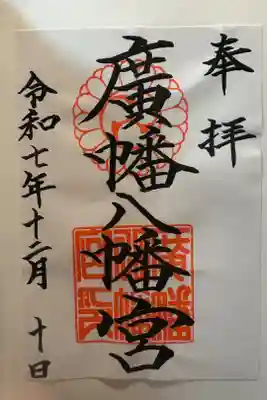 奉拝
廣幡八幡宮
令和七年十二月 十日